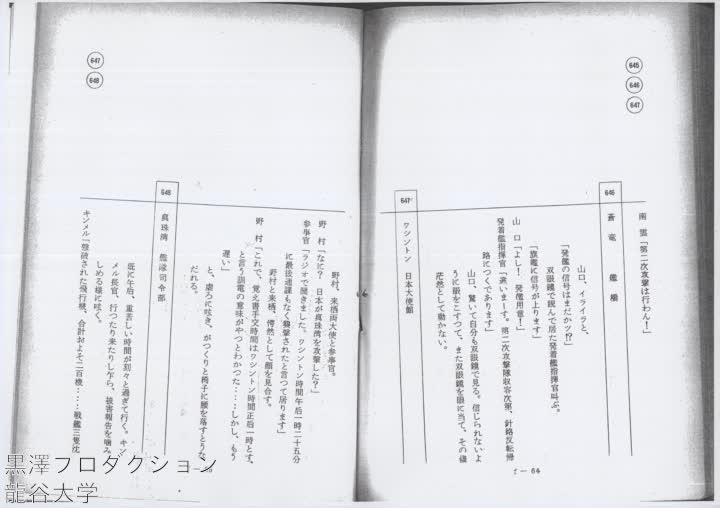 645
646
647
南雲「第二次攻撃は行わん！」
646
蒼竜　艦橋
山口、イライラと、
「発艦の信号はまだかッ⁉」
双眼鏡で睨んで居た発着艦指揮官叫ぶ。
「旗艦に信号が上ります」
山口「よし！　発艦用意！」
発着艦指揮官「違いまーす。第二次攻撃隊収容次第、針路反転帰
路につくであります」
山口、驚いて自分も双眼鏡で見る。信じられないよ
うに眼をこすつて、また双眼鏡を眼に当て、その儘
茫然として動かない。
647
ワシントン　日本大使館
f－64
647
648
野村、来栖両大使と参事官。
野村「なに？　日本が真珠湾を攻撃した？」
参事官「ラジオで聞きました。ワシントン時間午后一時二十五分
に最後通諜もなく襲撃されたと言つて居ります」
野村と来栖、愕然として顔を見合す。
野村「これで、覚え書手交時間はワシントン時間正后一時とす、
と言う訓電の意味がやつとわかつた‥‥しかし、もう
遅い」
と、虚ろに呟き、がつくりと椅子に腰を落すとうな
だれる。
648
真珠湾　艦隊司令部
既に午后、重苦しい時間が刻々と過ぎて行く。キン
メル長官、行つたり来たりし乍ら、被害報告を噛み
しめる様に呟く。
キンメル「撃破された飛行機、合計およそ二百機‥‥戦艦三隻沈
黒澤プロダクション
龍谷大学